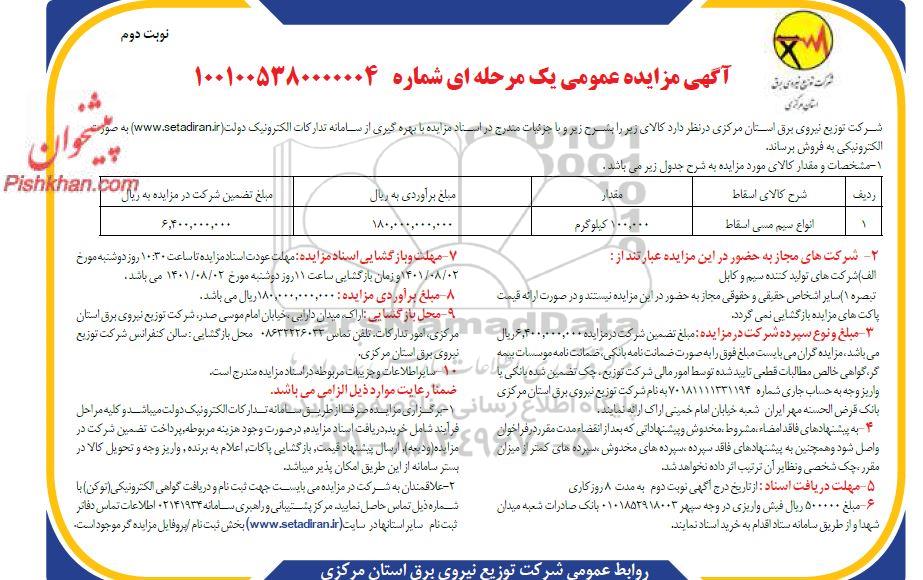 نوبت دوم
شرکت توزیع نیروی برق
استان مرکزی
آگهی مزایده عمومی یک مرحله ای شماره ۱۰۰۱۰۰۵۳۸۰۰۰۰۰۰۴
پیشخوان
Pishkhan.com
شرکت توزیع نیروی برق استان مرکزی درنظر دارد کالای زیر را بشرح زیر و با جزئیات مندرج در اسناد مزایده با بهره گیری از سامانه تدارکات الکترونیک دولت(www.setadiran.ir) به صورت
الکترونیکی به فروش برساند.
۱-مشخصات و مقدار کالای مورد مزایده به شرح جدول زیر می باشد .
ردیف شرح کالای اسقاط مقدار مبلغ برآوردی به ریال مبلغ تضمین شرکت در مزایده به ریال
۱ انواع سیم مسی اسقاط ۱۰۰,۰۰۰ کیلوگرم ۱۸۰,۰۰۰,۰۰۰,۰۰۰ ۶,۴۰۰,۰۰۰,۰۰۰
۲- شرکت های مجاز به حضور در این مزایده عبارتند از :
الف)شرکت های تولید کننده سیم و کابل
تبصره ۱)سایر اشخاص حقیقی و حقوقی مجاز به حضور در این مزایده نیستند و در صورت ارائه قیمت
پاکت های مزایده بازگشایی نمی گردد.
۳-مبلغ و نوع سپرده شرکت در مزایده : مبلغ تضمین شرکت در مزایده ۶,۴۰۰,۰۰۰,۰۰۰ریال
می باشد، مزایده گران می بایست مبلغ فوق را به صورت ضمانت نامه بانکی، ضمانت نامه موسسات بیمه
گر،گواهی خالص مطالبات قطعی تایید شده توسط امور مالی شرکت توزیع ، چک تضمین شده بانکی یا
واریز وجه به حساب جاری شماره ۷۰۱۸۱۱۱۱۳۳۱۱۹۴ به نام شرکت توزیع نیروی برق استان مرکزی
بانک قرض الحسنه مهر ایران شعبه خیابان امام خمینی اراک ارائه نمایند .
۴-به پیشنهادهای فاقد امضاء،مشروط،مخدوش و پیشنهاداتی که بعد از انقضاء مدت مقرر در فراخوان
واصل شود وهمچنین به پیشنهادهای فاقد سپرده ،سپرده های مخدوش ،سپرده های کمتر از میزان
مقرر ،چک شخصی ونظایر آن ترتیب اثر داده نخواهد شد.
۵-مهلت دریافت اسناد : از تاریخ درج آگهی نوبت دوم به مدت ۸ روز کاری
۶-مبلغ ۵۰۰۰۰۰ ریال فیش واریزی در وجه سپهر ۰۱۰۱۸۵۲۹۱۸۰۰۳ بانک صادرات شعبه میدان
شهدا و از طریق سامانه ستاد اقدام به خرید اسناد نمایند.
۷-مهلت و بازگشایی اسناد مزایده : مهلت عودت اسناد مزایده تا ساعت ۱۰:۳۰ روز دوشنبه مورخ
۱۴۰۱/۰۸/۰۲ و زمان بازگشایی ساعت ۱۱ روز دوشنبه مورخ ۱۴۰۱/۰۸/۰۲ می باشد .
۸-مبلغ برآوردی مزایده : ۱۸۰,۰۰۰,۰۰۰,۰۰۰ریال می باشد .
۹-محل بازگشایی :اراک، میدان دارایی ،خیابان امام موسی صدر، شرکت توزیع نیروی برق استان
مرکزی، امور تدارکات، تلفن تماس ۰۸۶۳۲۲۲۶۰۳۳ محل بازگشایی : سالن کنفرانس شرکت توزیع
نیروی برق استان مرکزی.
۱۰- سایر اطلاعات و جزییات مربوطه در اسناد مزایده مندرج است.
ضمنا رعایت موارد ذیل الزامی می باشد.
۱-برگزاری مزایده صرفا از طریق سامانه تدارکات الکترونیک دولت میباشد و کلیه مراحل
فرآیند شامل خرید،دریافت اسناد مزایده, درصورت وجود هزینه مربوطه,پرداخت تضمین شرکت در
مزایده(ودیعه), ارسال پیشنهاد قیمت, بازگشایی پاکات, اعلام به برنده , واریز وجه و تحویل کالا در
بستر سامانه از این طریق امکان پذیر میباشد.
۲-علاقمندان به شرکت در مزایده می بایست جهت ثبت نام و دریافت گواهی الکترونیکی(توکن) با
شماره ذیل تماس حاصل نمایید, مرکز پشتیبانی و راهبری سامانه ۰۲۱۴۱۹۳۴ اطلاعات تماس دفاتر
ثبت نام سایر استانها در سایت (www.setadiran.ir) بخش ثبت نام /پروفایل مزایده گر موجود است.
روابط عمومی شرکت توزیع نیروی برق استان مرکزی